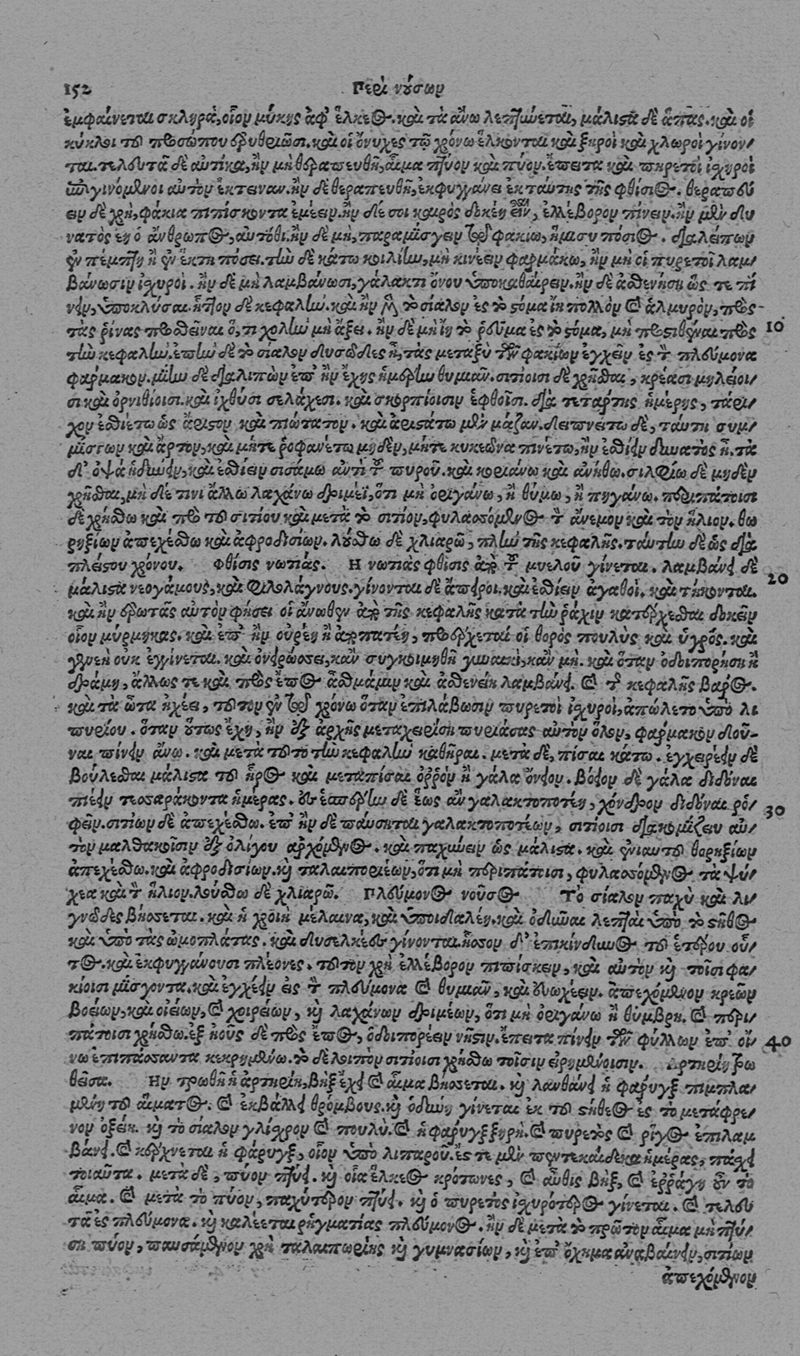 152 Περὶ νούσων
ἐμφαίνεται σκληρὰ, οἷον μύκης ἀφ' ἕλκεος. καὶ τὰ ἄνω λεπτύνεται, μάλιστα δὲ ἅπας. καὶ οἱ
κύκλοι τοῦ προσώπου ἐρυθριῶσι. καὶ οἱ ὄνυχες τῷ χρόνῳ ἕλκονται καὶ ξηροὶ καὶ χλωροὶ γίνον/
ται. τελευτᾷ δὲ αὐτίκα, ἢν μὴ θεραπευθῇ, αἷμα πτύον καὶ πύον. ἔπειτα καὶ πυρετοὶ ἰσχυροὶ
ἐπιγινόμενοι αὐτὸν ἔκτειναν. ἢν δὲ θεραπευθῇ, ἐκφυγγάνει ἐκ ταύτης τῆς φθίσιος. θεραπεύ/
ειν δὲ χρὴ, φάκια πιπίσκοντα ἐμέειν. ἢν δέ σοι καιρὸς δοκέῃ εἶναι, ἐλλέβορον πίνειν. ἢν μὲν δυ/
νατὸς ἔῃ ὁ ἄνθρωπος, αὐτόθι. ἢν δὲ μὴ, παραμίσγειν τῷ φακίῳ, ἥμισυ πόσιος. διαλείπων
ἐν πέμπτῃ ἢ ἐν ἕκτῃ πόσει. τὴν δὲ κάτω κοιλίην, μὴ κινέειν φαρμάκῳ, ἢν μὴ οἱ πυρετοὶ λαμ/
βάνωσιν ἰσχυροί. ἢν δὲ μὴ λαμβάνωσι, γάλακτι ὄνου ὑποκαθαίρειν. ἢν δὲ ἀσθενήσῃ ὡς τε πί
νειν, ὑποκλύσαι. ἧττον δὲ κεφαλήν. καὶ ἢν μὲν τὸ σίαλον ἐς τὸ στόμα ἴῃ πολλὸν καὶ ἁλμυρὸν, πρὸς
τὰς ῥῖνας προσθεῖναι ὅ, τι χολὴν μὴ ἄξει. ἢν δὲ μὴ ἴῃ τὸ ῥεῦμα ἐς τὸ στόμα, μὴ προστιθέναι πρὸς 10
τὴν κεφαλήν. ἐπὴν δὲ τὸ σίαλον δυσῶδες ᾖ, τὰς μεταξὺ τῶν φακίων ἐγχεῖν ἐς τὸν πλεύμονα
φάρμακον. μίην δὲ διαλιπὼν ἐπ' ἢν ἔχῃς ἡμέρην θυμιᾶν. σιτίοισι δὲ χρῆσθαι, κρέασι μηλείοι/
σι καὶ ὀρνιθίοισι. καὶ ἰχθύσι σελάχεσι. καὶ σκορπίοισιν ἑφθοῖσι. διὰ τετάρτης ἡμέρης, τάρι/
χον ἐσθιέτω ὡς ἄριστον καὶ πιώτατον. καὶ ἀριστάτω μὲν μᾶζαν. δειπνείτω δὲ, ταύτῃ συμ/
μίσγων καὶ ἄρτον, καὶ μήτε ῥοφανέτω μηδὲν, μήτε κυκεῶνα πινέτω, ἢν ἐσθίειν δυνατὸς ᾖ. τὰ
δ' ὄψα ἡδύνειν, καὶ ἐσθίειν σισάμῳ ἀντὶ τοῦ τυροῦ. καὶ κοριάνῳ καὶ ἀνήθῳ. σιλφίῳ δὲ μηδὲν
χρῆσθαι, μηδέ τινι ἄλλῳ λαχάνῳ δριμεῖ, ὅτι μὴ ὀριγάνῳ, ἢ θύμῳ, ἢ πηγάνῳ. περιπάτοισι
δὲ χρήσθω καὶ πρὸ τοῦ σιτίου καὶ μετὰ τὸ σιτίον, φυλασσόμενος τὸν ἄνεμον καὶ τὸν ἥλιον. θω
ρηξίων ἀπεχέσθω καὶ ἀφροδισίων. λούσθω δὲ χλιαρῷ, πλὴν τῆς κεφαλῆς. ταύτην δὲ ὡς διὰ
πλείστου χρόνου. Φθίσις νωτιάς. Η νωτιὰς φθίσις ἀπὸ τοῦ μυελοῦ γίνεται. λαμβάνει δὲ
μάλιστα νεογάμους, καὶ φιλολάγνους. γίνονται δὲ ἄπυροι. καὶ ἐσθίειν ἀγαθοί. καὶ τήκονται. 20
καὶ ἢν ἐρωτᾷς αὐτὸν φήσει οἱ ἄνωθεν ἀπὸ τῆς κεφαλῆς κατὰ τὴν ῥάχιν κατέρχεσθαι δοκεῖν
οἷον μύρμηκας. καὶ ἐπ' ἢν οὐρέῃ ἢ ἀποπατέῃ, προέρχεταί οἱ θορὸς πουλὺς καὶ ὑγρός. καὶ
γενεὴ οὐκ ἐγγίνεται. καὶ ὀνειρώσσει, κἂν συγκοιμηθῇ γυναικὶ, κἂν μή. καὶ ὅταν ὁδοιπορήσῃ ἢ
δράμῃ, ἄλλως τε καὶ πρὸς ἔπος ἆσθμά μιν καὶ ἀσθενείη λαμβάνει. καὶ τῆς κεφαλῆς βάρος.
καὶ τὰ ὦτα ἠχέει, τοῦτον ἐν τῷ χρόνῳ ὅταν ἐπιλάβωσιν πυρετοὶ ἰσχυροὶ, ἀπώλετο ὑπὸ λι
πυρίου. ὅταν οὕτως ἔχῃ, ἢν ἐξ ἀρχῆς μεταχειρίσῃ πυριάσας αὐτὸν ὅλον, φάρμακον δοῦ/
ναι πίνειν ἄνω. καὶ μετὰ τοῦτο τὴν κεφαλὴν καθῆραι. μετὰ δὲ, πῖσαι κάτω. ἐγχειρέειν δὲ
βούλεσθαι μάλιστα τοῦ ἦρος καὶ μεταπῖσαι ὀρρὸν ἢ γάλα ὄνειον. βόειον δὲ γάλα διδόναι
πίνειν τεσσαράκοντα ἡμέρας. ἐς ἑσπέρην δὲ ἕως ἂν γαλακτοποτέῃ, χόνδρον διδόναι ῥο/
φεῖν. σιτίων δὲ ἀπεχέσθω. ἐπ' ἢν δὲ παύσηται γαλακτοποτέων, σιτίοισι διακομίζειν αὐ/ 30
τὸν μαλθακοῖσιν ἐξ ὀλίγου ἀρχόμενος. καὶ παχύνειν ὡς μάλιστα. καὶ ἐνιαυτοῦ θωρηξίων
ἀπεχέσθω. καὶ ἀφροδισίων. καὶ ταλαιπωριέων, ὅτι μὴ περιπάτοισι, φυλασσόμενος τὰ ψύ/
χεα καὶ τὸν ἥλιον. λούσθω δὲ χλιαρῷ. Πλεύμονος νοῦσος. Τὸ σίαλον παχὺ καὶ λι/
γνυῶδες βήσσεται. καὶ ἡ χροιὴ μέλαινα, καὶ ὑποιδαλέη. καὶ ὀδύναι λεπταὶ ὑπὸ τὸ στῆθος
καὶ ὑπὸ τὰς ὠμοπλάτας. καὶ δυσελκέες γίνονται. ἧσσον δ' ἐπικίνδυνος τοῦ ἑτέρου οὗ/
τος. καὶ ἐκφυγγάνουσι πλέονες. τοῦτον χρὴ ἐλλέβορον πιπίσκειν, καὶ αὐτὸν καὶ τοῖσι φα/
κίοισι μίσγοντα. καὶ ἐγχέειν ἐς τὸν πλεύμονα καὶ θυμιᾶν, καὶ εὐωχέειν. ἀπεχόμενον κρεῶν
βοείων, καὶ οἰείων, καὶ χοιρείων, καὶ λαχάνων δριμέων, ὅτι μὴ ὀριγάνῳ ἢ θύμβρῃ. καὶ περι/
πάτοισι χρήσθω. ἐξ ἠοῦς δὲ πρὸς ἔπος, ὁδοιπορέειν νῆστιν. ἔπειτα πίνειν τῶν φύλλων ἐπ' οἴ/ 40
νῳ ἐπιπάσσαντα κεκρημένῳ. τὸ δὲ λοιπὸν σιτίοισι χρήσθω τοῖσιν εἰρημένοισιν. Ἀρτηρίη τρω
θεῖσα. Ην τρωθῇ ἡ ἀρτηρίη, βὴξ ἔχει καὶ αἷμα βήσσεται. καὶ λανθάνει ἡ φάρυγξ πιμπλα/
μένη τοῦ αἵματος. καὶ ἐκβάλλει θρόμβους. καὶ ὀδύνη γίνεται ἐκ τοῦ στήθεος ἐς τὸ μετάφρε/
νον ὀξείη. καὶ τὸ σίαλον γλίσχρον καὶ πουλὺ. καὶ ἡ φάρυγξ ξηρή. καὶ πυρετὸς καὶ ῥῖγος ἐπιλαμ
βάνει. καὶ κέρχνεται ἡ φάρυγξ, οἷον ὑπὸ λιπαροῦ. ἔς τε μὲν πεντεκαίδεκα ἡμέρας, πάσχει
τοιαῦτα. μετὰ δὲ, πύον πτύει. καὶ οἷα ἕλκεος κρότωνες, καὶ αὖθις βὴξ, καὶ ἐρράγη ὦν τὸ
αἷμα. καὶ μετὰ τὸ πύον, παχύτερον πτύει. καὶ ὁ πυρετὸς ἰσχυρότερος γίνεται. καὶ τελευ
τᾷ ἐς πλεύμονα. καὶ καλέεται ῥηγματίας πλεύμονος. ἢν δὲ μετὰ τὸ πρῶτον αἷμα μὴ πτύ/
σῃ πύον, παυσάμενον χρὴ ταλαιπωρίης καὶ γυμνασίων, καὶ ἐπ' ὄχημα ἀναβαίνειν, σιτίων
ἀπεχόμενον